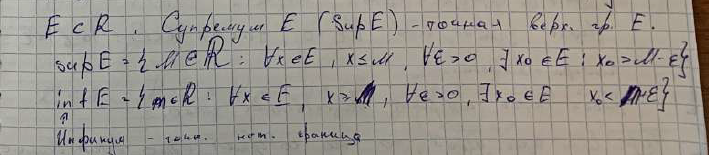 E ⊂ R. Супремум E (Sup E) - точная верх. гр. E.
sup E = { M ∈ R : ∀x ∈ E, x ≤ M, ∀ε > 0, ∃ x₀ ∈ E : x₀ > M - ε}
inf E = { m ∈ R : ∀x ∈ E, x ≥ m, ∀ε > 0, ∃ x₀ ∈ E x₀ < m + ε}
↑
Инфимум - точн. ниж. граница